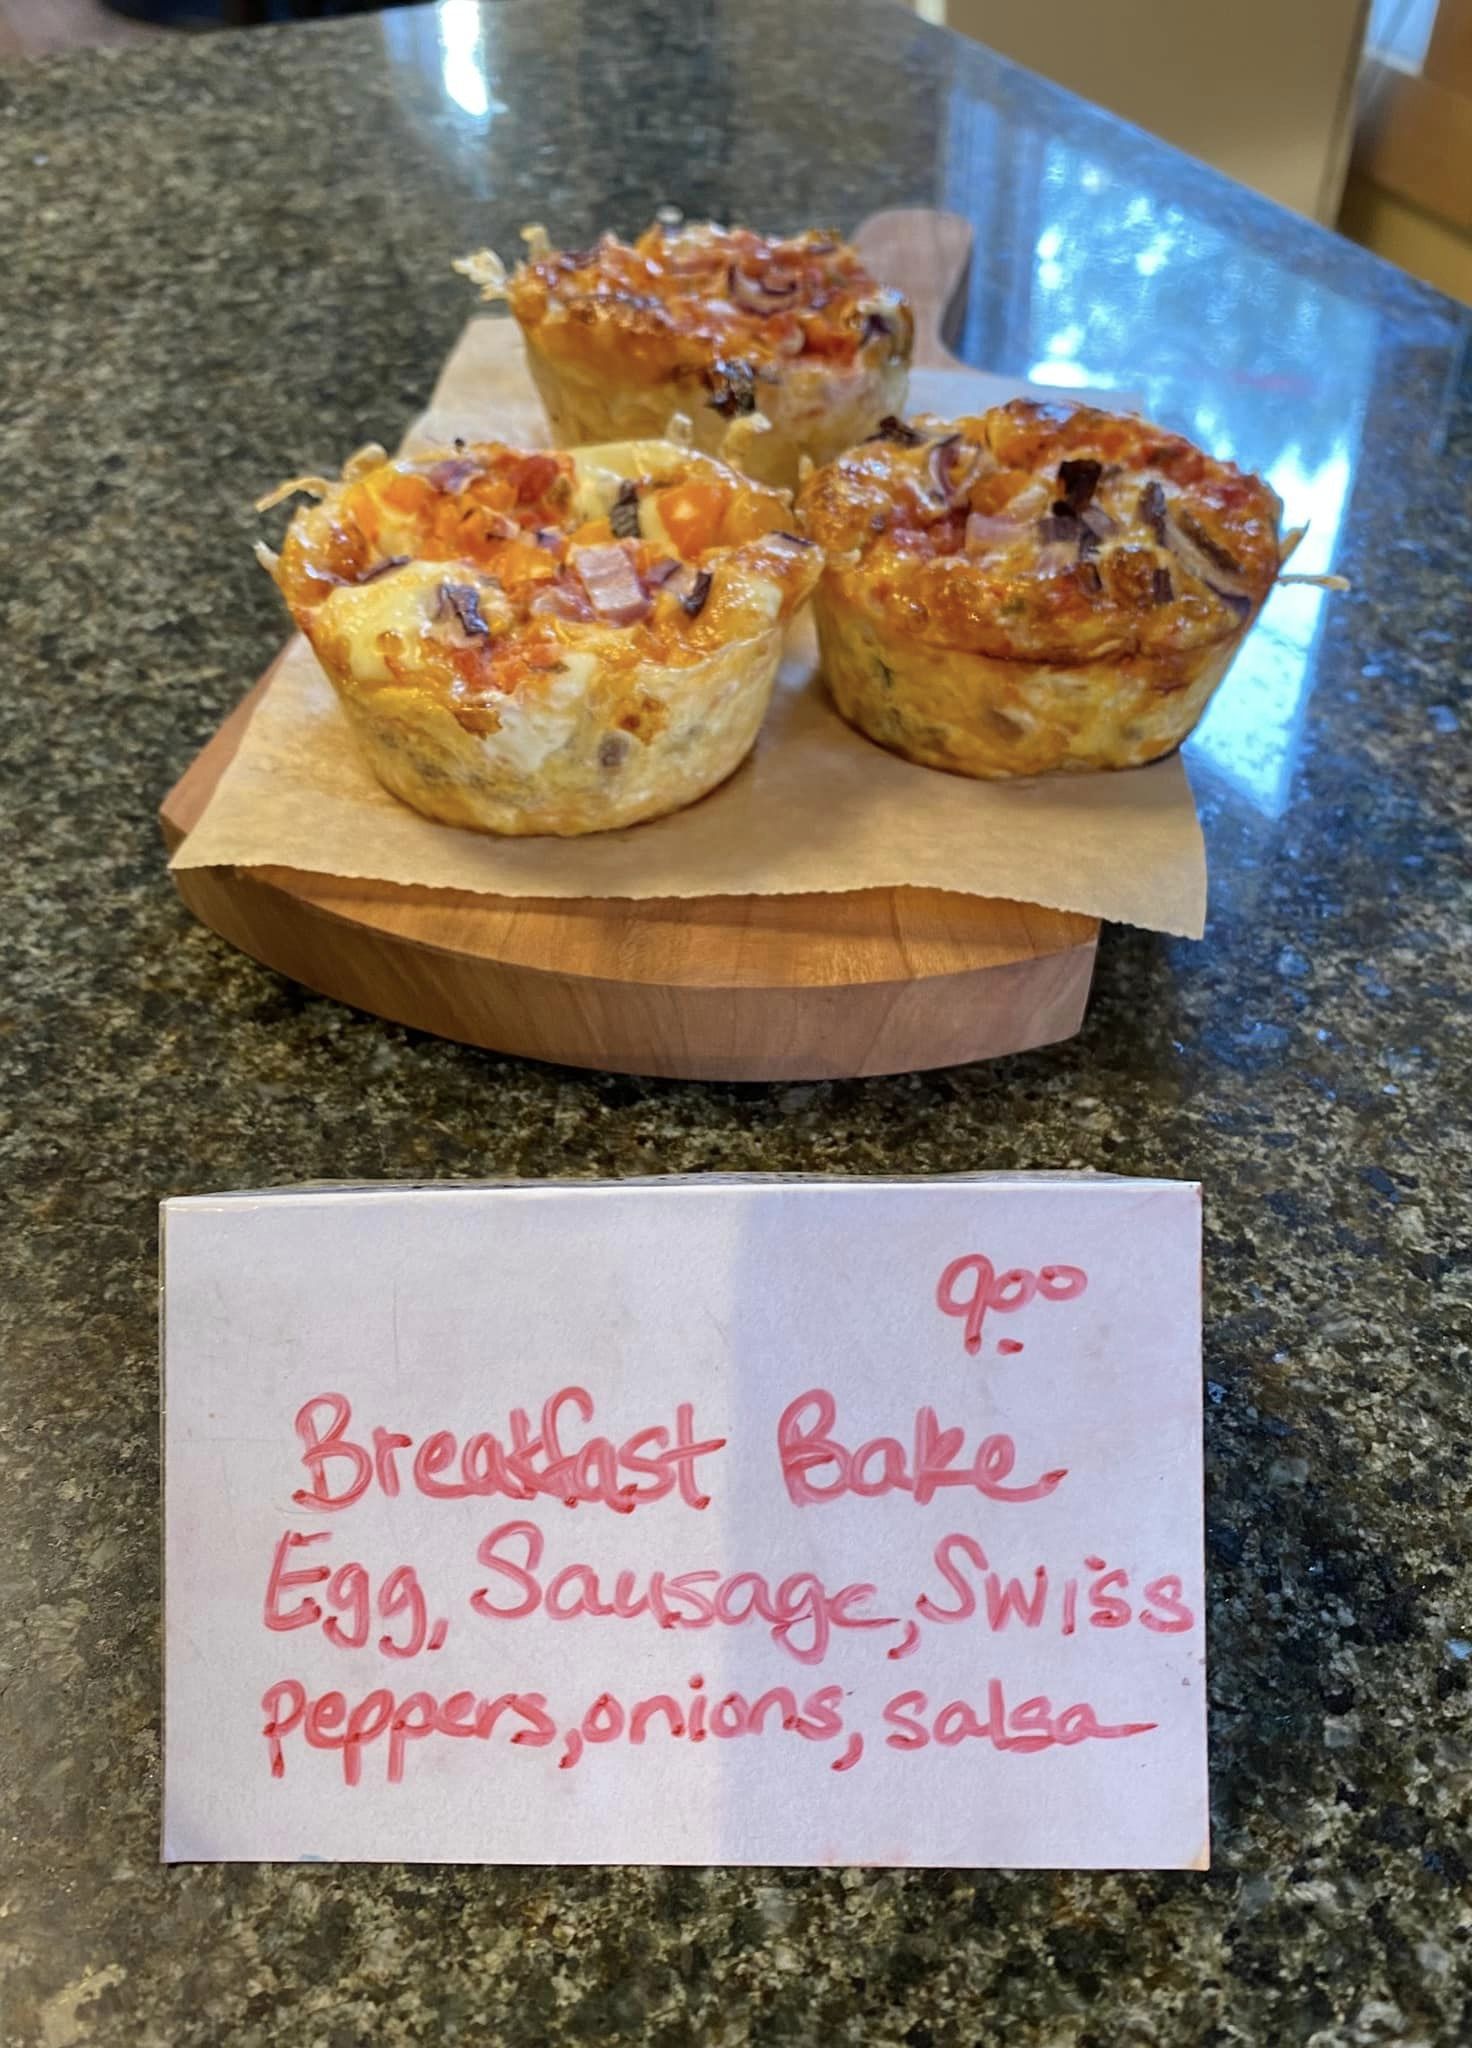 9.00
Breakfast Bake
Egg, Sausage, Swiss
peppers, onions, salsa